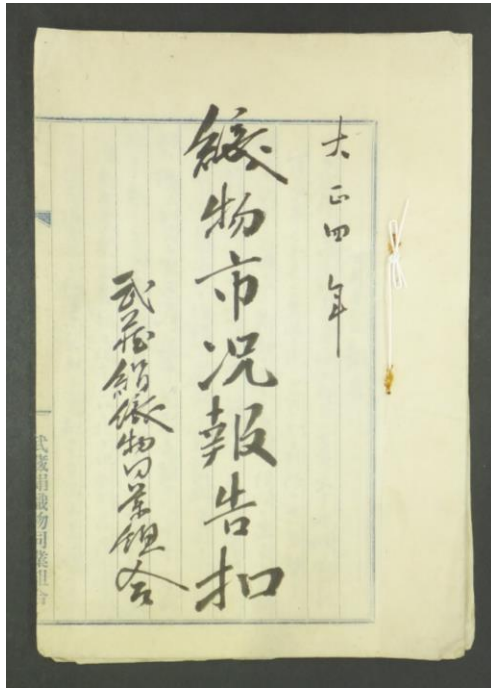 大正四年
織物市况報告扣
武蔵絹織物同業組合
武蔵絹織物同業組合